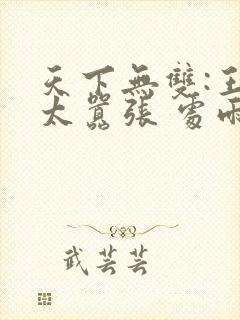 天下無雙:王
太囂張
武芸芸